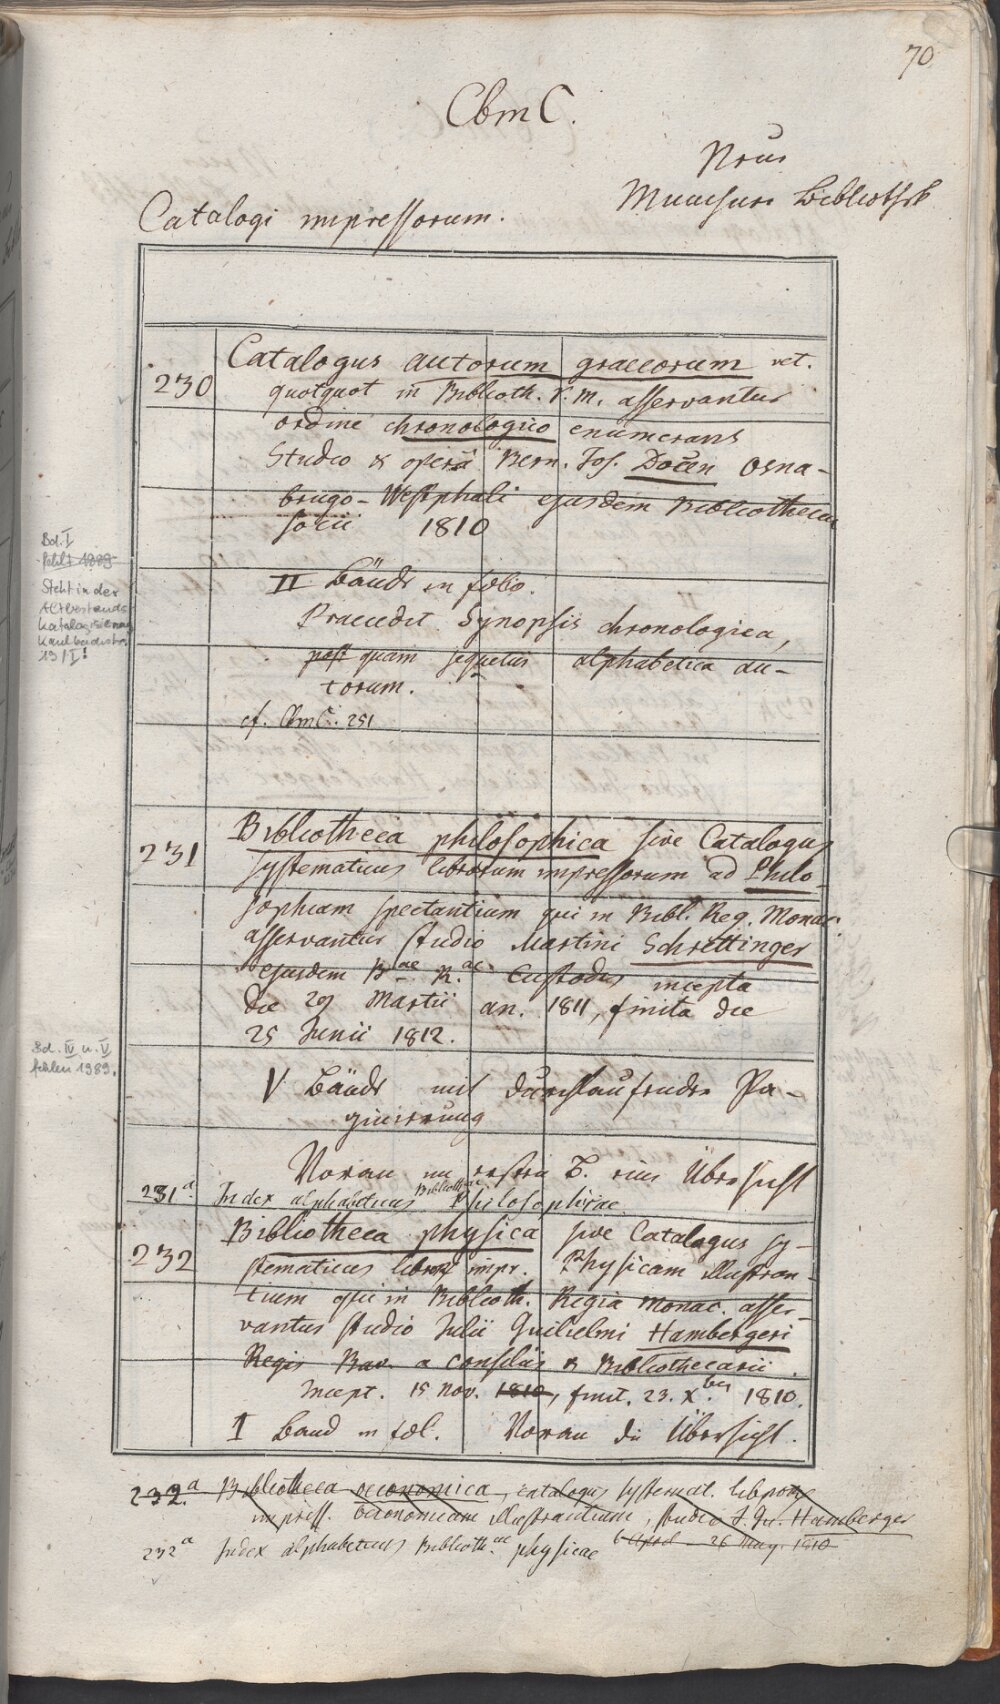 70
CbmC.
Neue
Münchner Bibliothek
Catalogi impressorum.
230
Catalogus autorum graecorum vet.
quotquot in Biblioth. r. m. asservantur
ordine chronologico enumerans
Studio & operâ Bern. Jos. Docen Osna-
brugo-Westphali ejusdem Bibliothecae
socii 1810
II Bände in folio.
Praecedit Synopsis chronologica,
post quam sequetur alphabetica au-
torum.
cf. CbmC. 251
Bd. I
fehlt 1989
Steht in der
Altbestands
Katalogisierung
Kaulbachstr.
19/I!
231
Bibliotheca philosophica sive Catalogus
systematicus librorum impressorum ad Philo-
sophiam spectantium qui in Bibl. Reg. Monac.
asservantur studio Martini Schrettinger
ejusdem B.ae R.ae Custodis incepta
die 29 Martii an. 1811, finita die
25 Junii 1812.
Bd. IV u. V
fehlen 1989.
V Bände mit durchlaufender Pa-
ginierung
Voran im ersten B. eine Übersicht
231a. Index alphabeticus Bibliothecae Philosophicae
232
Bibliotheca physica sive Catalogus sy-
stematicus libror. impr. Physicam illustran-
tium qui in Biblioth. Regia Monac. asser-
vantur studio Julii Guilielmi Hambergeri
Regis Bav. a consiliis & Bibliothecarii.
Incept. 15 Nov. 1810, finit. 23. Xber 1810.
I Band in fol. Voran die Übersicht.
232.a Bibliotheca oeconomica, catalogus systemat. libror.
impress. Oeconomicam illustrantium, studio J. Gu. Hamberger
26 May. 1810
232a Index alphabeticus Biblioth.ae physicae